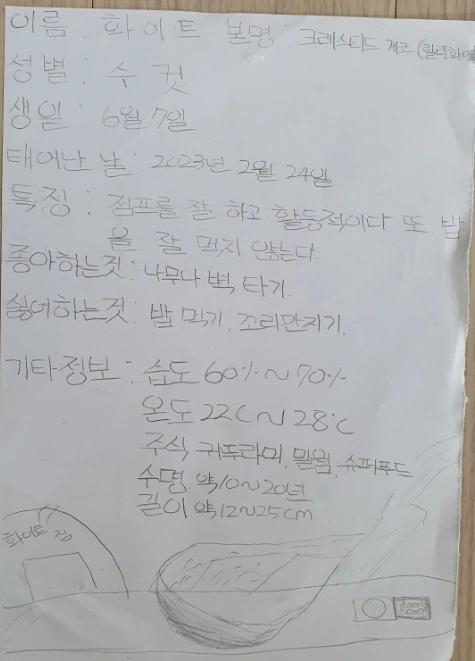 이름 : 화이트 본명 : 크레스티드 게코 (릴리화이
성별 : 수컷
생일 : 6월 7일
태어난 날 : 2023년 2월 24일
특징 : 점프를 잘 하고 활동적이다 또 밥
을 잘 먹지 않는다.
좋아하는것 : 나무나 벽 타기.
싫어하는것 : 밥 먹기, 꼬리만지기.
기타정보 : 습도 60%~70%
온도 22℃~28℃
주식 귀뚜라미, 밀웜, 슈퍼푸드
수명 약10~20년
길이 약12~25cm
화이트 집